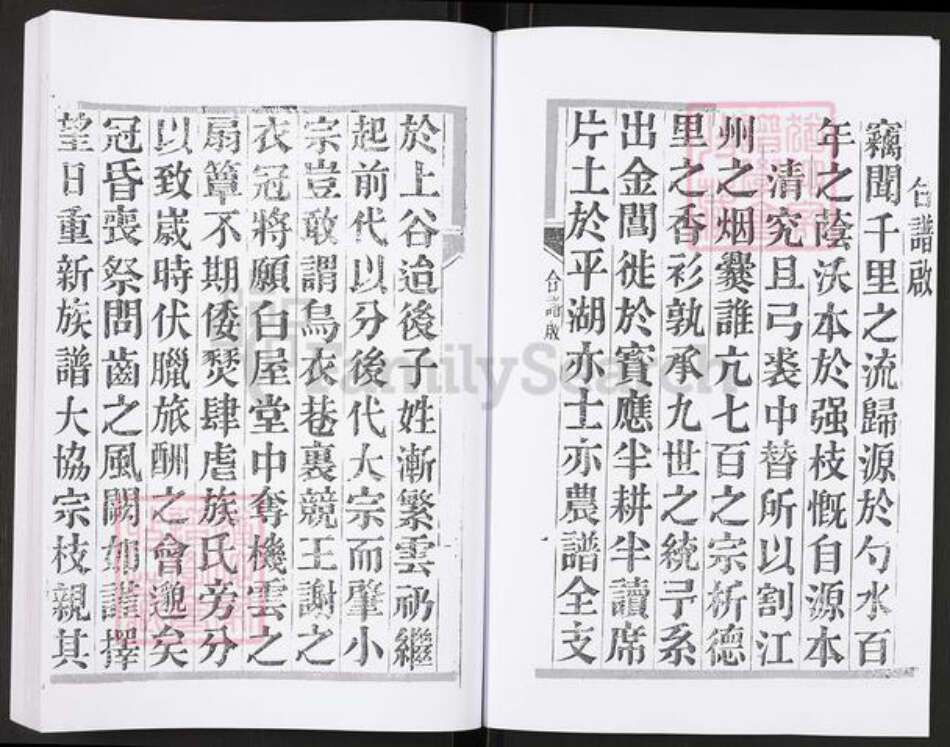 合譜啟
竊聞千里之流歸源於勺水百
年之蔭沃本於强枝慨自源本
清究且弓裘中替所以割江
州之烟爨誰亢七百之宗析德
里之香衫孰承九世之統予系
出金閶徙於寳應半耕半讀席
片土於平湖亦士亦農譜全支
合譜啟
於上谷迨後子姓漸繁雲礽繼
起前代以分後代大宗而肇小
宗豈敢謂烏衣巷裏競王謝之
衣冠將願白屋堂中奪機雲之
扇簟不期倭燹肆虐族氏旁分
以致嵗時伏臘旅酬之會邈矣
冠昏喪祭問齒之風闕如謹擇
望日重新族譜大協宗枝親其
FamilySearch